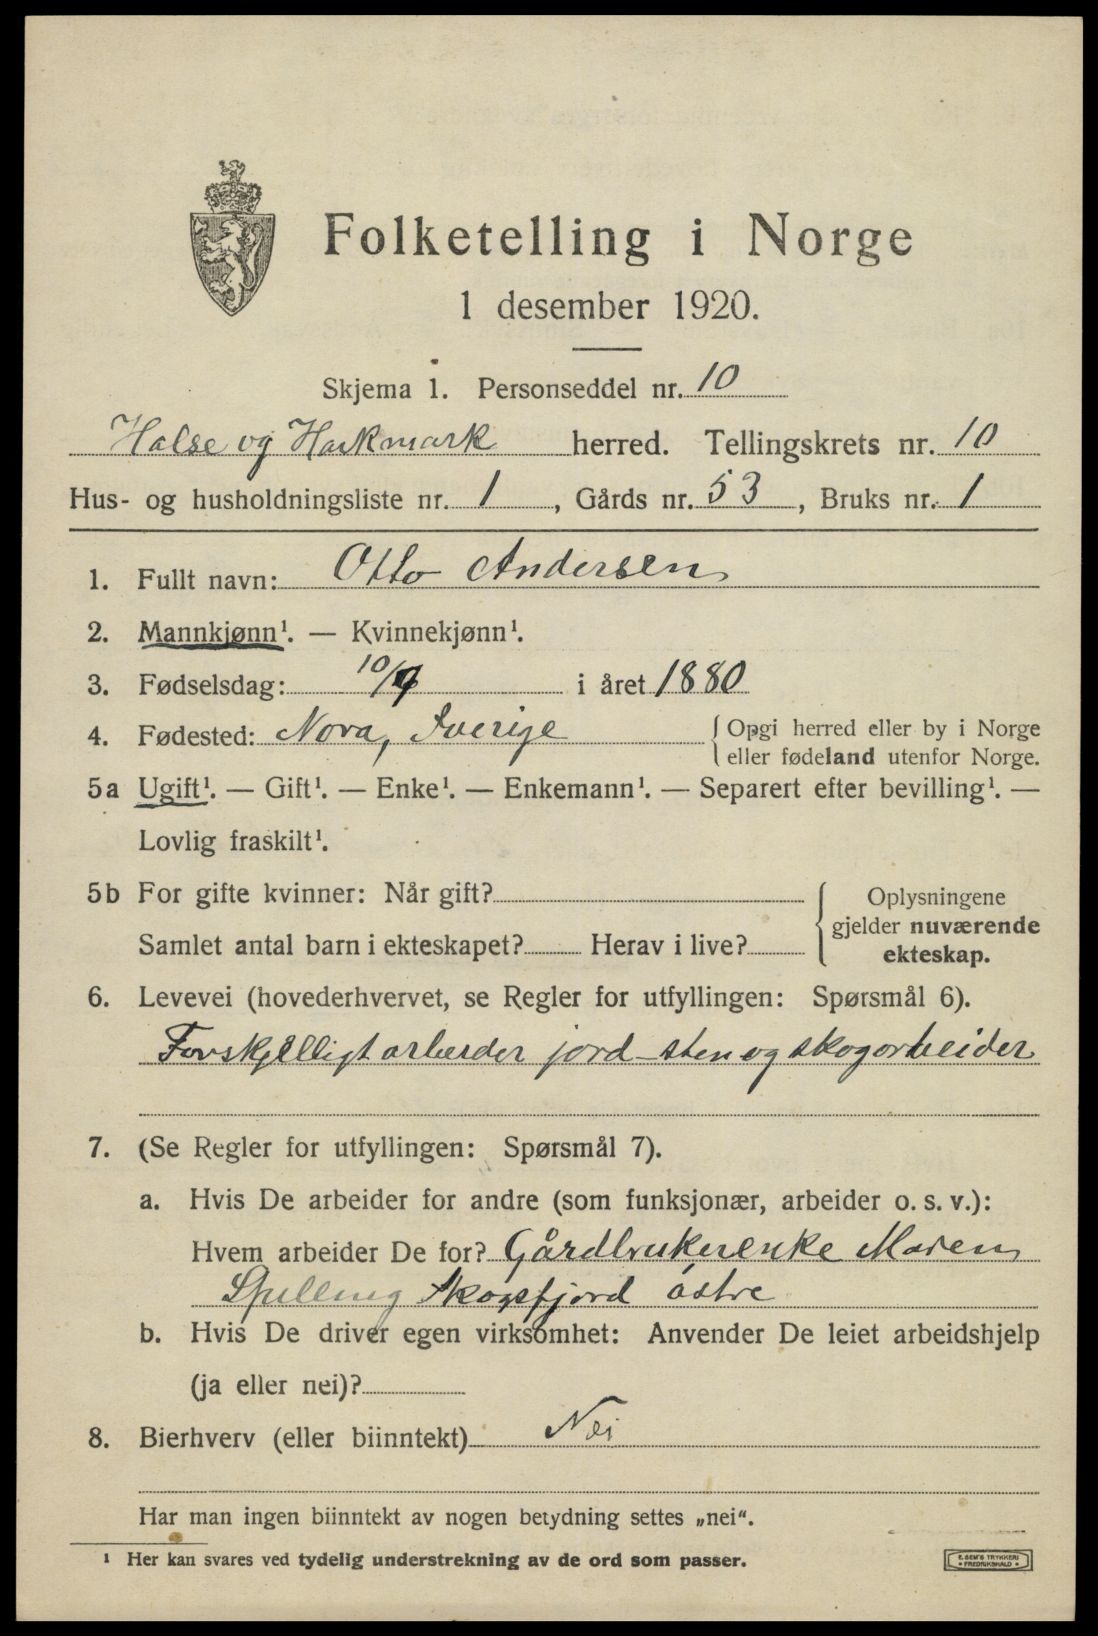 Folketelling i Norge
1 desember 1920.
Skjema 1. Personseddel nr. 10
Halse og Harkmark herred. Tellingskrets nr. 10
Hus- og husholdningsliste nr. 1, Gårds nr. 53, Bruks nr. 1
1. Fullt navn: Otto Andersen
2. Mannkjønn¹. — Kvinnekjønn¹.
3. Fødselsdag: 10/9 i året 1880
4. Fødested: Nora, Sverige { Opgi herred eller by i Norge
eller fødeland utenfor Norge.
5a Ugift¹. — Gift¹. — Enke¹. — Enkemann¹. — Separert efter bevilling¹. —
Lovlig fraskilt¹.
5b For gifte kvinner: Når gift? { Oplysningene
gjelder nuværende
Samlet antal barn i ekteskapet? Herav i live? ekteskap.
6. Levevei (hovederhvervet, se Regler for utfyllingen: Spørsmål 6).
Forskjelligt arbeider jord-sten og skogarbeider
7. (Se Regler for utfyllingen: Spørsmål 7).
a. Hvis De arbeider for andre (som funksjonær, arbeider o. s. v.):
Hvem arbeider De for? Gårdbrukerenke Maren
Spilling Skogsfjord østre
b. Hvis De driver egen virksomhet: Anvender De leiet arbeidshjelp
(ja eller nei)?
8. Bierhverv (eller biinntekt) Nei
Har man ingen biinntekt av nogen betydning settes „nei“.
¹ Her kan svares ved tydelig understrekning av de ord som passer.
E. SEM'S TRYKKERI
• FREDRIKSHALD •